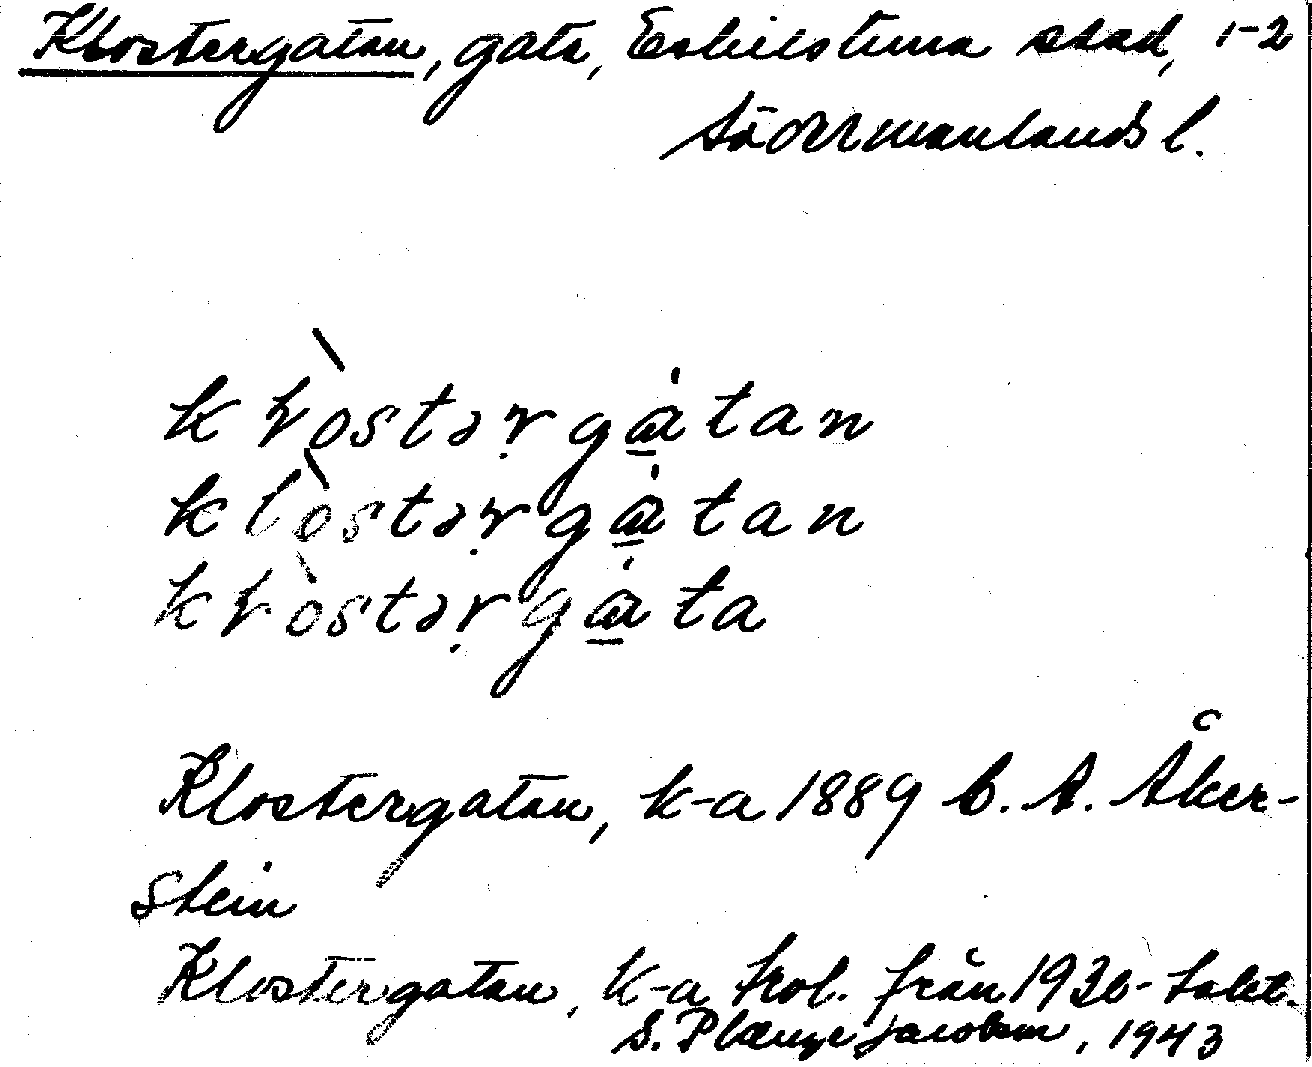 Klostergatan, gata, Eskilstuna stad, 1-2
Södermanlands l.
kɽòstəṛga̱̍tan
klòstəṛga̱̍tan
kɽòstəṛga̱̍ta
Klostergatan, k-a 1889 C. A. Åker-
stein
Klostergatan, k-a trol. från 1930-talet.
S. Plænge Jacobson, 1943